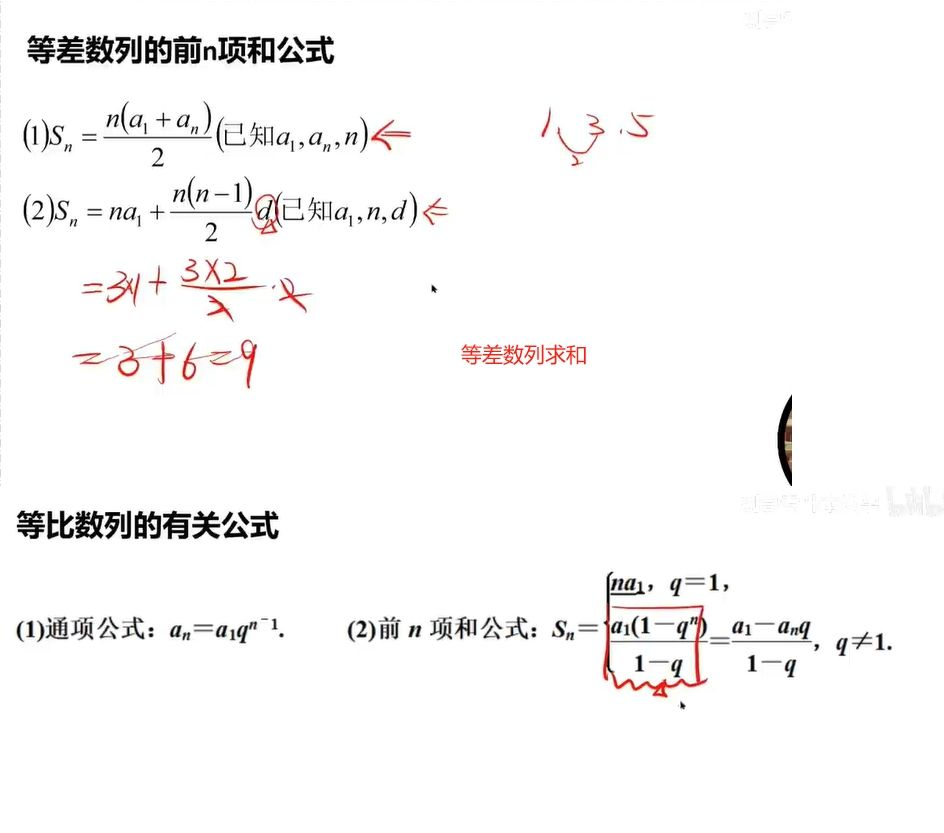 等差数列的前n项和公式
(1)Sₙ = n(a₁ + aₙ)/2 (已知a₁, aₙ, n)
1, 3 . 5
2
(2)Sₙ = na₁ + n(n−1)/2 d(已知a₁, n, d)
=3×1+ 3×2/2 · 2
=3+6=9
等差数列求和
等比数列的有关公式
(1)通项公式：aₙ=a₁qⁿ⁻¹.
(2)前 n 项和公式：Sₙ={na₁，q=1， a₁(1−qⁿ)/1−q = a₁−aₙq/1−q，q≠1.